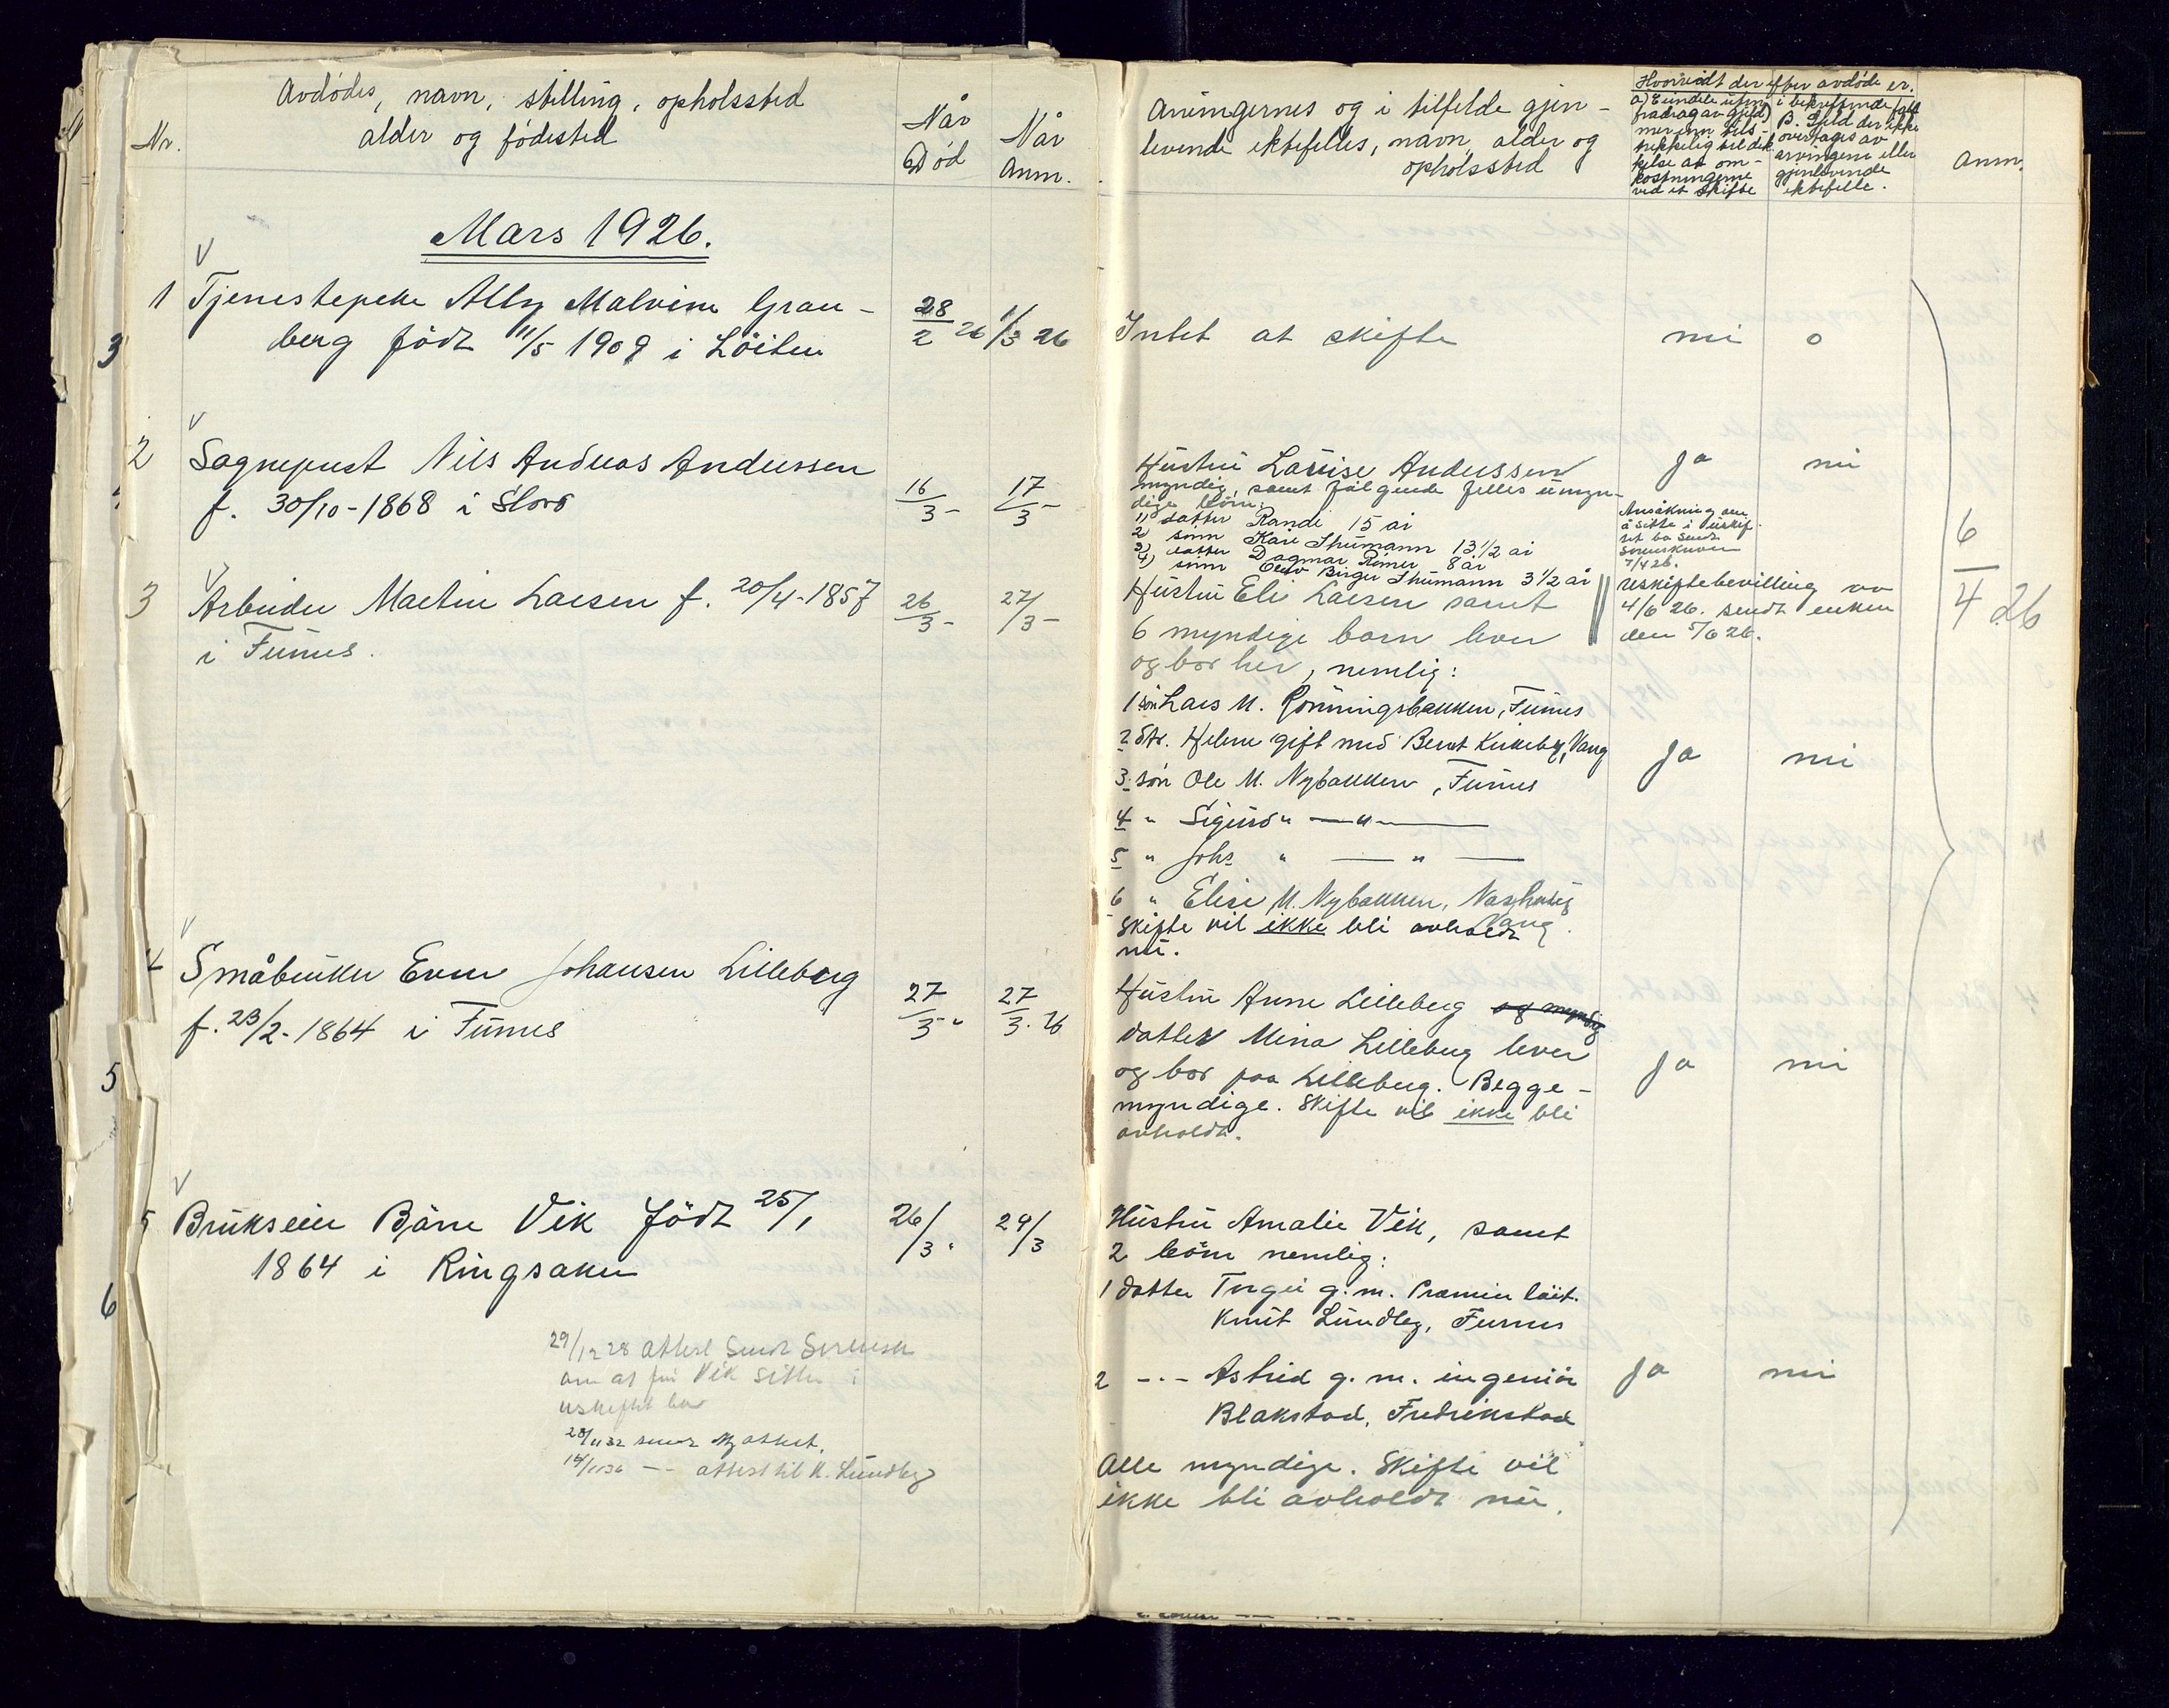 Nr.
Avdødes, navn, stilling, opholssted
alder og fødested
Når
Død
Når
Anm.
Arvingernes og i tilfelde gjen-
levende ektefelles, navn, alder og
opholssted
Hvorvidt der efter avdøde er.
a) Eiendele (uten
fradrag av gjeld)
mer enn tils-
trekkelig til dek
kelse av om-
kostningerne
ved et skifte
i bekreftende fall
B. Gjeld der ikke
overtages av
arvingerne eller
gjenlevende
ektefelle.
Anm.
Mars 1926.
1 Tjenestepike Alby Malvine Gran-
berg født 11/5 1909 i Löiten
28/2 26
1/3 26
Intet at skifte
nei
0
2 Sogneprest Nils Andreas Anderssen
f. 30/10-1868 i Slovo
16/3 -
17/3 -
Hustru Louise Anderssen
myndig, samt følgende felles umyn-
dige børn:
1) datter Randi 15 år
2) sønn Kåre Thumann 13 1/2 år
3) datter Dagmar Rimer 8 år
4) sønn Olav Birger Thumann 3 1/2 år
Ja
nei
Ansøkning om
å sitte i uskif-
tet bo sendt
Sorenskriver
7/4 26.
3 Arbeider Martin Larsen f. 20/4-1857
i Furnes.
26/3 -
27/3 -
Hustru Eli Larsen samt
6 myndige barn lever
og bor her, nemlig:
1 søn Lars M. Rönningsbakken, Furnes
2 dtr. Helene gift med Bernt Kirkeby, Vang
3. søn Ole M. Nybakken, Furnes
4 " Sigurd " — " —
5 " Johs " — " —
6 " Elise M. Nybakken, Nashaug
Vang.
Skifte vil ikke bli avholdt
nu.
Uskiftebevilling av
4/6 26. sendt enken
den 5/6 26.
Ja
nei
6/4 26
4 Småbruker Even Johansen Lilleberg
f. 23/2-1864 i Furnes
27/3 "
27/3. 26
Hustru Anne Lilleberg og myndig
datter Mina Lilleberg lever
og bor paa Lilleberg. Begge-
myndige. Skifte vil ikke bli
avholdt.
Ja
nei
5 Brukseier Bjarne Vik født 25/1
1864 i Ringsaker
26/3 "
29/3
Hustru Amalie Vik, samt
2 börn nemlig:
1 datter Torgei g. m. Premier löit.
Knut Lundby, Furnes
2 -"- Astrid g. m. ingeniør
Blakstad, Fredrikstad
Alle myndige. Skifte vil
ikke bli avholdt nu.
Ja
nei
29/12 28 attest sendt Sorensen
om at fru Vik sitter i
uskiftet bo
28/11 32 sendt ny attest.
14/11 36 -"- attest til K. Lundby
3
5
6